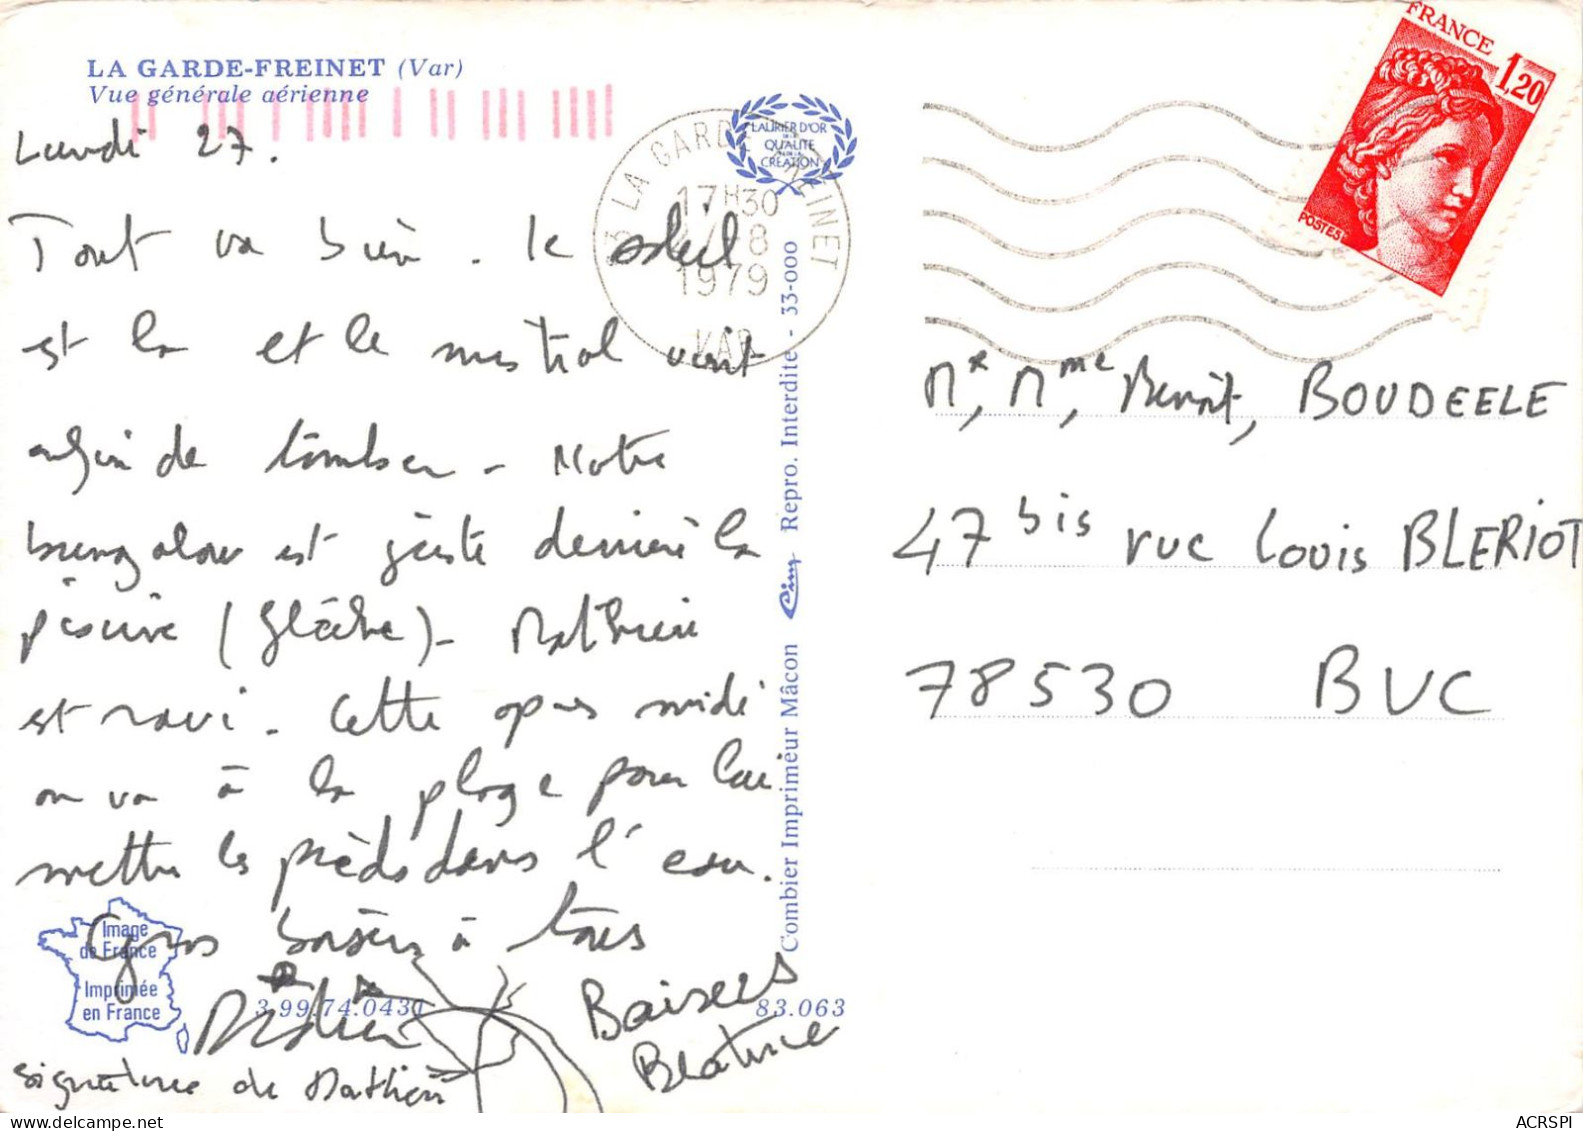 LA GARDE-FREINET (Var)
Vue générale aérienne
Lundi 27.
Tout va bien. le soleil
est la et le mistral vient
enfin de tomber - Notre
bungalow est juste derriere la
piscine (glacée) - Mathieu
est ravi. Cette après midi
on va à la plage pour lui
mettre les pieds dans l'eau.
Gros baisers à tous
Didier
Baisers
Béatrice
signature de Mathieu
Image
de France
Imprimée
en France
3.99.74.0431
83.063
Combier Imprimeur Mâcon Cim Repro. Interdite - 33-000
LAURIER D'OR
DE LA
QUALITÉ
CRÉATION
83 LA GARDE FREINET
17H30
27-8
1979
VAR
FRANCE
1,20
POSTES
Mr, Mme, Benoît, BOUDEELE
47 bis rue Louis BLERIOT
78530 BUC
ACRSPI